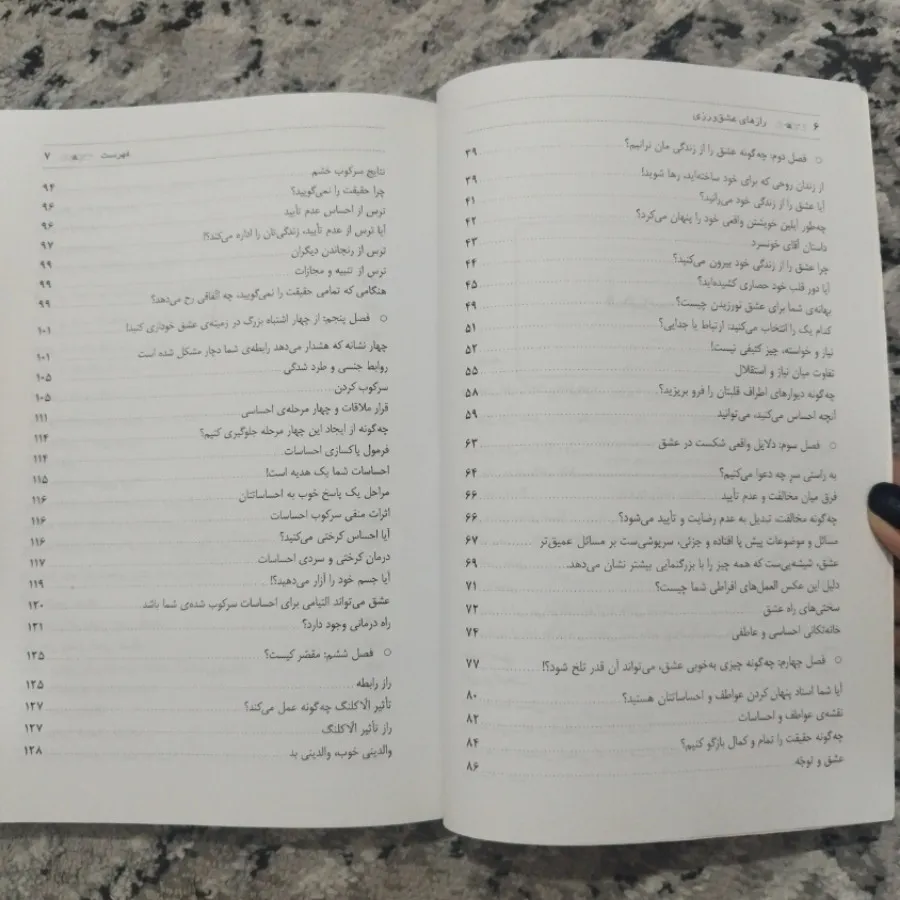 ۶ رازهای عشق‌ورزی
○ فصل دوم: چه‌گونه عشق را از زندگی مان نرانیم؟ ۳۹
از زندان روحی که برای خود ساخته‌اید، رها شوید! ۳۹
آیا عشق را از زندگی خود می‌رانید؟ ۴۱
چه‌طور ایلین خویشتن واقعی خود را پنهان می‌کرد؟ ۴۲
داستان آقای خونسرد ۴۳
چرا عشق را از زندگی خود بیرون می‌کنید؟ ۴۴
آیا دور قلب خود حصاری کشیده‌اید؟ ۴۵
بهانه‌ی شما برای عشق نورزیدن چیست؟ ۴۹
کدام یک را انتخاب می‌کنید: ارتباط یا جدایی؟ ۵۱
نیاز و خواسته، چیز کثیفی نیست! ۵۲
تفاوت میان نیاز و استقلال ۵۵
چه‌گونه دیوارهای اطراف قلبتان را فرو بریزید؟ ۵۸
آنچه احساس می‌کنید، می‌توانید ۵۹
○ فصل سوم: دلایل واقعی شکست در عشق ۶۳
به راستی سر چه دعوا می‌کنیم؟ ۶۴
فرق میان مخالفت و عدم تأیید ۶۶
چه‌گونه مخالفت، تبدیل به عدم رضایت و تأیید می‌شود؟ ۶۶
مسائل و موضوعات پیش پا افتاده و جزئی، سرپوشی‌ست بر مسائل عمیق‌تر ۶۷
عشق، شیشه‌یی‌ست که همه چیز را با بزرگنمایی بیشتر نشان می‌دهد. ۶۹
دلیل این عکس العمل‌های افراطی شما چیست؟ ۷۱
سختی‌های راه عشق ۷۲
خانه‌تکانی احساسی و عاطفی ۷۴
○ فصل چهارم: چه‌گونه چیزی به‌خوبی عشق، می‌تواند آن قدر تلخ شود؟! ۷۷
آیا شما استاد پنهان کردن عواطف و احساساتتان هستید؟ ۸۰
نقشه‌ی عواطف و احساسات ۸۲
چه‌گونه حقیقت را تمام و کمال بازگو کنیم؟ ۸۴
عشق و توجّه ۸۶
فهرست ۷
نتایج سرکوب خشم ۹۴
چرا حقیقت را نمی‌گویید؟ ۹۶
ترس از احساس عدم تأیید ۹۶
آیا ترس از عدم تأیید، زندگی‌تان را اداره می‌کند؟! ۹۷
ترس از رنجاندن دیگران ۹۹
ترس از تنبیه و مجازات ۹۹
هنگامی که تمامی حقیقت را نمی‌گویید، چه اتفاقی رخ می‌دهد؟ ۹۹
○ فصل پنجم: از چهار اشتباه بزرگ در زمینه‌ی عشق خودداری کنید! ۱۰۱
چهار نشانه که هشدار می‌دهد رابطه‌ی شما دچار مشکل شده است ۱۰۱
روابط جنسی و طرد شدگی ۱۰۵
سرکوب کردن ۱۰۵
قرار ملاقات و چهار مرحله‌ی احساسی ۱۱۱
چه‌گونه از ایجاد این چهار مرحله جلوگیری کنیم؟ ۱۱۴
فرمول پاکسازی احساسات ۱۱۴
احساسات شما یک هدیه است! ۱۱۵
مراحل یک پاسخ خوب به احساساتتان ۱۱۶
اثرات منفی سرکوب احساسات ۱۱۶
آیا احساس کرختی می‌کنید؟ ۱۱۶
درمان کرختی و سردی احساسات ۱۱۷
آیا جسم خود را آزار می‌دهید؟! ۱۱۹
عشق می‌تواند التیامی برای احساسات سرکوب شده‌ی شما باشد ۱۲۰
راه درمانی وجود دارد؟ ۱۲۱
○ فصل ششم: مقصّر کیست؟ ۱۲۵
راز رابطه ۱۲۵
تأثیر الّاکلنگ چه‌گونه عمل می‌کند؟ ۱۲۷
راز تأثیر الّاکلنگ ۱۲۷
والدینی خوب، والدینی بد ۱۲۸